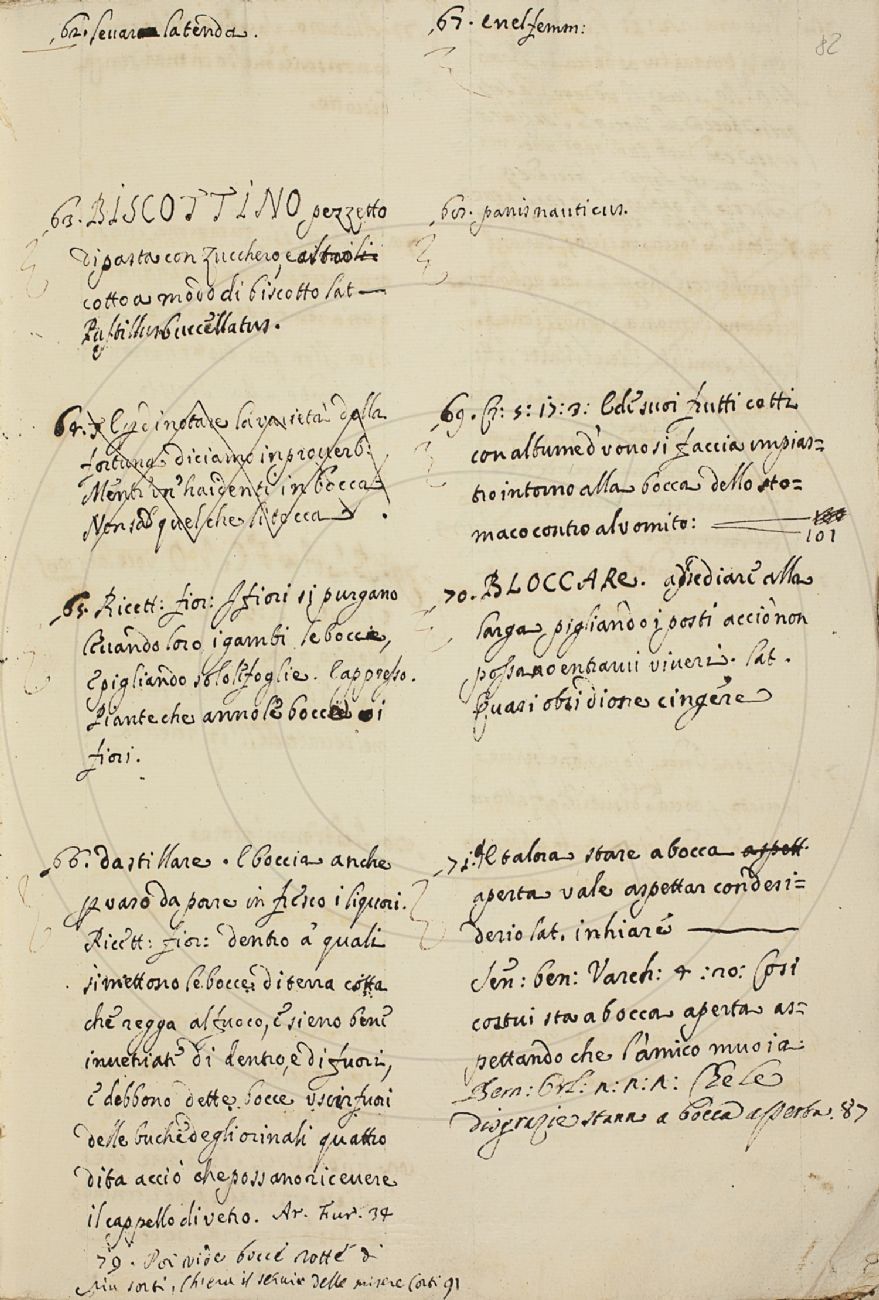 62. levar la tenda.
63. BISCOTTINO pezzetto
di pasta con Zucchero, e
cotto a modo di biscotto lat
Pastillus buccellatus.
64. la varietà della
fortuna diciamo in proverb:
Mentr un' ha denti in bocca
Non sa quel che li tocca
65. Ricett: fior: I fiori si purgano
levando loro i gambi le boccie,
e pigliando solo le foglie. E appresso.
Piante che anno le boccie i
fiori.
66. dastillare. E boccia anche
p vaso da porre in fresco i liquori.
Ricett: fior: dentro a quali
si mettono le bocce di terra cotta
che regga al fuoco, e sieno bene
invetriati di dentro, e di fuori,
e debbono dette bocce uscir fuori
delle buche degli orinali quattro
dita acciò che possano ricevere
il cappello di vetro. Ar. Fur. 34
79. Poi vide bocce rotte di
più sorti, Ch'era il servir delle misere Corti 91
67. e nel femm:
82
68. panis nauticus.
69. Cr: 5: 17: 3: E de suoi frutti cotti
con albume d'vovo si faccia impias=
tro intorno alla bocca dello sto=
maco contro al vomito:
101
70. BLOCCARe. assediare alla
larga pigliando i posti acciò non
possano entrarvi viveri. lat.
Quasi obsidione cingere
71. E talora stare a bocca aspett
aperta vale aspettar con desi=
derio lat. inhiare
Sen: ben: Varch: 4: 20: Così
costui sta a bocca aperta as=
pettando che l'amico muoia
Bern: Orl: 2: 2: 2: Che le
disgrazie stann a bocca aperta. 87